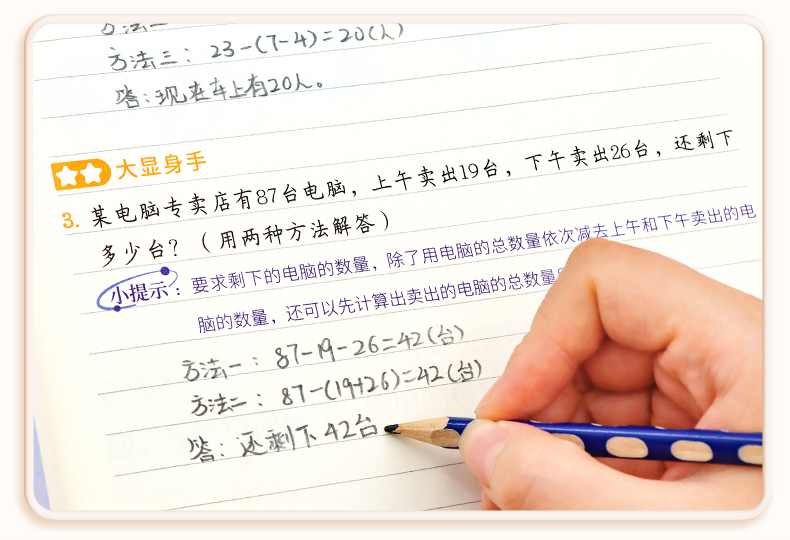 方法三：23-(7-4)=20(人)
答：现在车上有20人。
大显身手
3. 某电脑专卖店有87台电脑，上午卖出19台，下午卖出26台，还剩下
多少台？（用两种方法解答）
小提示：要求剩下的电脑的数量，除了用电脑的总数量依次减去上午和下午卖出的电
脑的数量，还可以先计算出卖出的电脑的总数量
方法一：87-19-26=42(台)
方法二：87-(19+26)=42(台)
答：还剩下42台